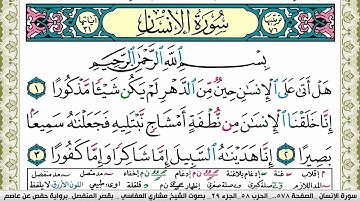 سورة الإنسان
بسم الله الرحمن الرحيم
هَلْ أَتَىٰ عَلَى الْإِنسَٰنِ حِينٌ مِّنَ الدَّهْرِ لَمْ يَكُن شَيْـًٔا مَّذْكُورًا ١
إِنَّا خَلَقْنَا الْإِنسَٰنَ مِن نُّطْفَةٍ أَمْشَاجٍ نَّبْتَلِيهِ فَجَعَلْنَٰهُ سَمِيعًۢا
بَصِيرًا ٢ إِنَّا هَدَيْنَٰهُ السَّبِيلَ إِمَّا شَاكِرًا وَإِمَّا كَفُورًا ٣
سورة الإنسان، الصفحة ٥٧٨، الحزب ٥٨، الجزء ٢٩، بصوت الشيخ مشاري العفاسي، بقصر المنفصل، برواية حفص عن عاصم